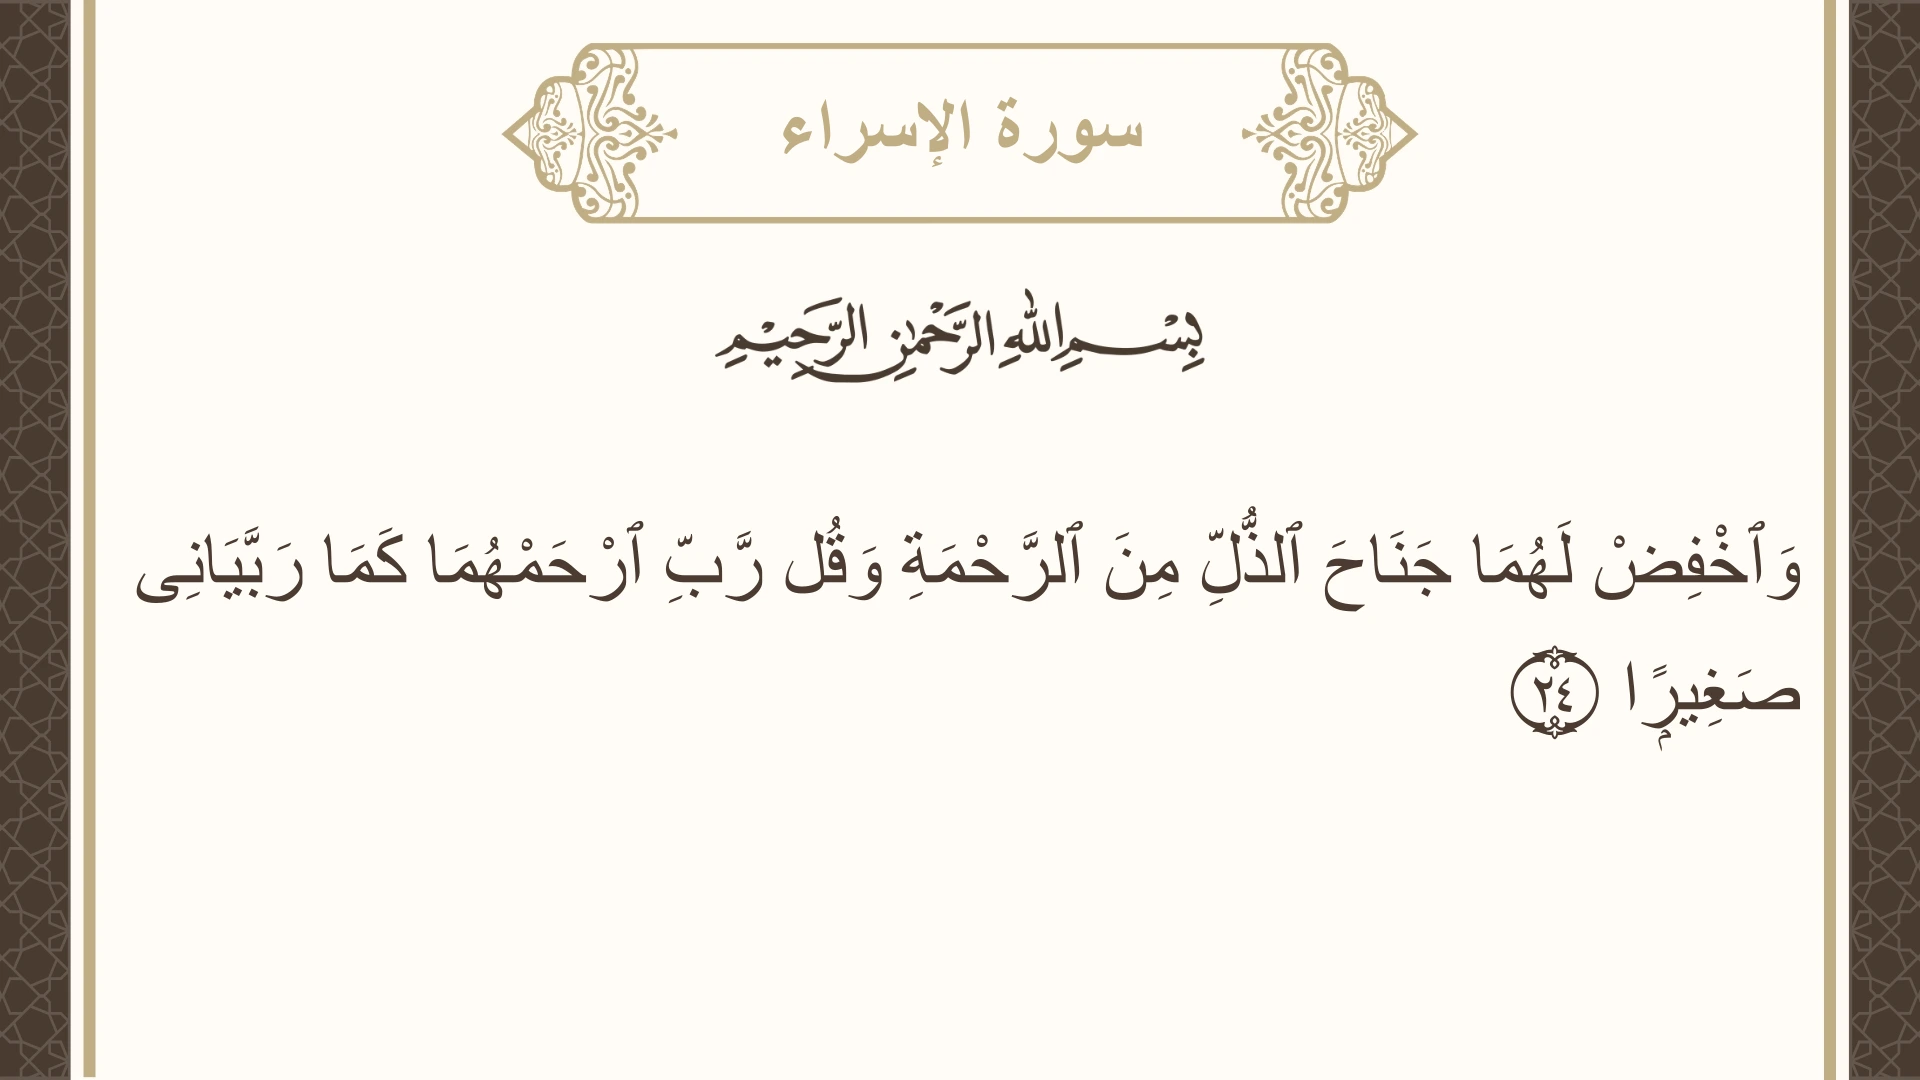 سورة الإسراء
بِسْمِ اللهِ الرَّحْمٰنِ الرَّحِيْمِ
وَٱخْفِضْ لَهُمَا جَنَاحَ ٱلذُّلِّ مِنَ ٱلرَّحْمَةِ وَقُل رَّبِّ ٱرْحَمْهُمَا كَمَا رَبَّيَانِى
صَغِيرًۭا ٢٤